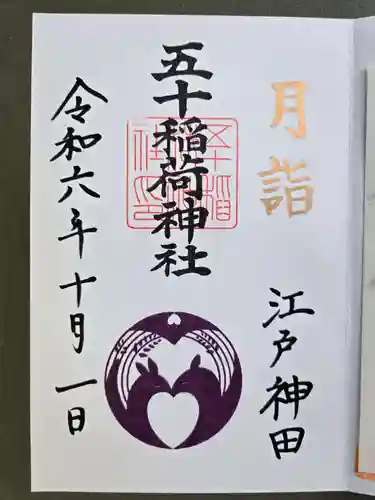 月詣
江戸神田
五十稲荷神社
令和六年十月一日